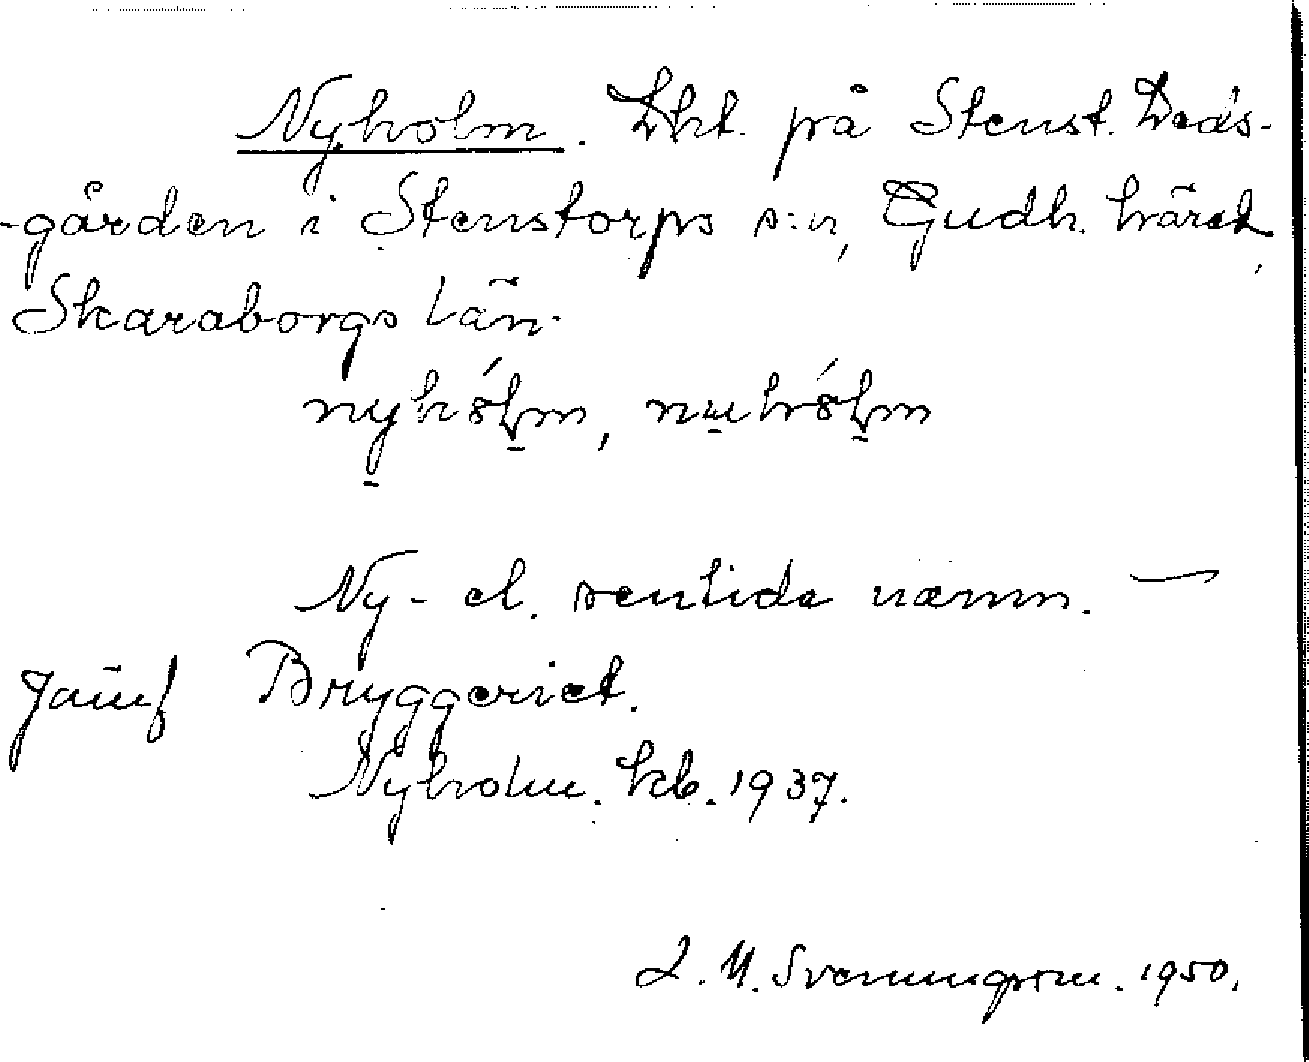 Nyholm. Lht. på Stenst. Dads-
-gården i Stenstorps s:n, Gudh. härad,
Skaraborgs län.
nyhólm, nuhólm
Ny- el. sentida namn. —
Jämf Bryggeriet.
Nyholm. kb. 1937.
L. M. Svenungsson. 1950.